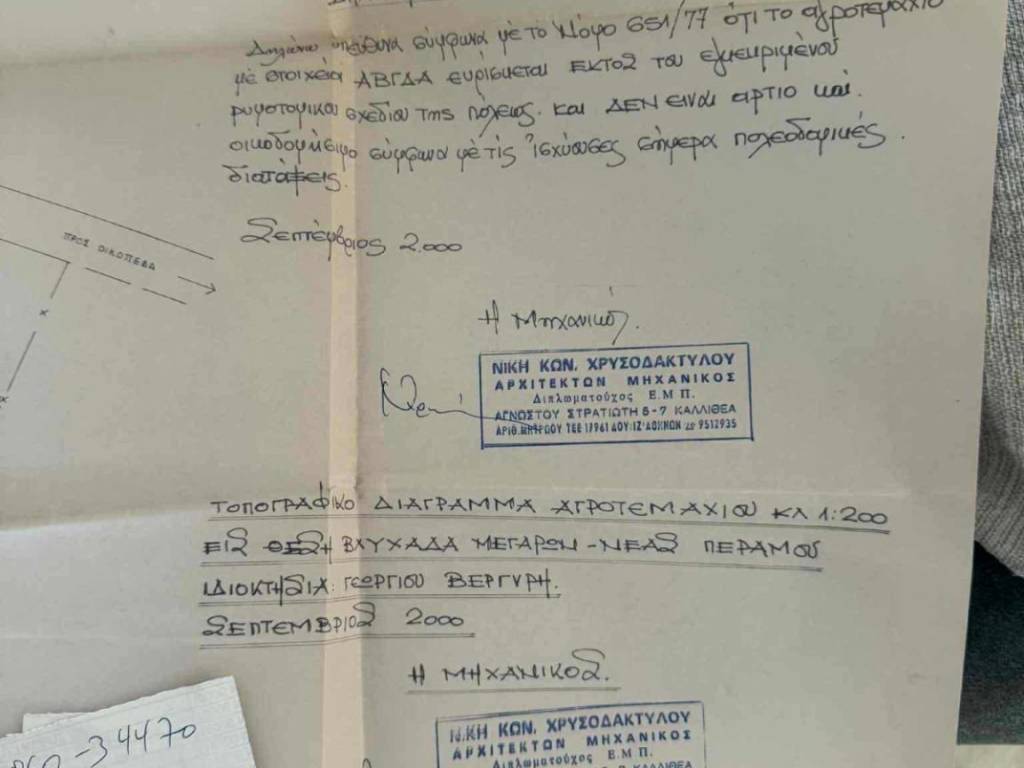 Δηλώνω υπεύθυνα σύμφωνα με το Νόμο 651/77 ότι το αγροτεμάχιο
με στοιχεία ΑΒΓΔΑ ευρίσκεται ΕΚΤΟΣ του εγκεκριμένου
ρυμοτομικού σχεδίου της πόλεως. και ΔΕΝ είναι άρτιο και
οικοδομήσιμο σύμφωνα με τις ισχύουσες σήμερα πολεοδομικές
διατάξεις.
Σεπτέμβριος 2.000
ΠΡΟΣ ΟΙΚΟΠΕΔΑ
Η Μηχανικός.
ΝΙΚΗ ΚΩΝ. ΧΡΥΣΟΔΑΚΤΥΛΟΥ
ΑΡΧΙΤΕΚΤΩΝ ΜΗΧΑΝΙΚΟΣ
Διπλωματούχος Ε.Μ.Π.
ΑΓΝΩΣΤΟΥ ΣΤΡΑΤΙΩΤΗ 5-7 ΚΑΛΛΙΘΕΑ
ΑΡΙΘ.ΜΗΤΡΩΟΥ ΤΕΕ 17961 ΔΟΥ:ΙΖ΄ΑΘΗΝΩΝ 9512935
ΤΟΠΟΓΡΑΦΙΚΟ ΔΙΑΓΡΑΜΜΑ ΑΓΡΟΤΕΜΑΧΙΟΥ ΚΛ 1:200
ΕΙΣ ΘΕΣΗ ΒΛΥΧΑΔΑ ΜΕΓΑΡΩΝ - ΝΕΑΣ ΠΕΡΑΜΟΥ
ΙΔΙΟΚΤΗΣΙΑ: ΓΕΩΡΓΙΟΥ ΒΕΡΓΥΡΗ.
ΣΕΠΤΕΜΒΡΙΟΣ 2000
Η ΜΗΧΑΝΙΚΟΣ.
ΝΙΚΗ ΚΩΝ. ΧΡΥΣΟΔΑΚΤΥΛΟΥ
ΑΡΧΙΤΕΚΤΩΝ ΜΗΧΑΝΙΚΟΣ
Διπλωματούχος Ε.Μ.Π.
ΚΑΛΛΙΘΕΑ
-34470